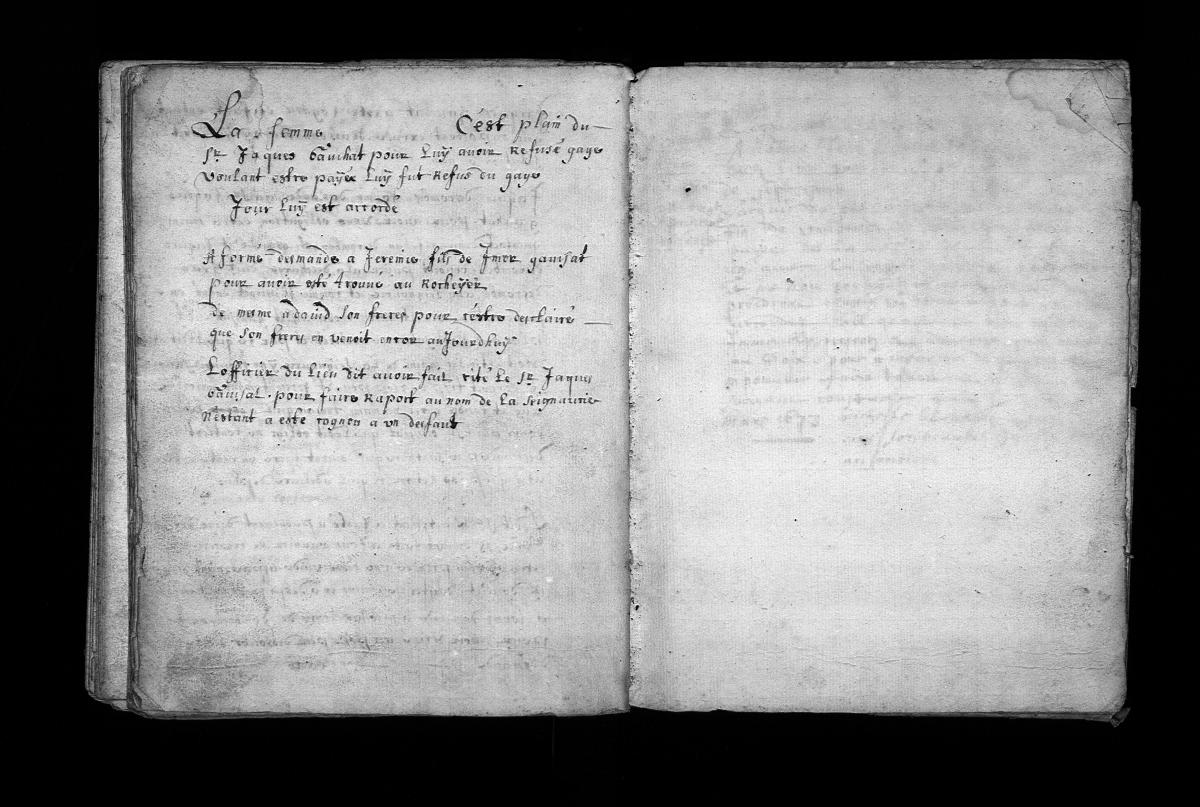 La femme C'est plain du
Sr. Jaques Gauchat pour Luÿ avoir Refusé gage
voulant estre payée Luÿ fut Refus du gage
Jour Luÿ est accordé
A formé desmande a Jeremie fils de Jmer gauchat
pour avoir esté trouvé au Rocheÿer
De mesme a david son frere pour s'estre desclairé
que son frere en venoit encor auJourdhuÿ
Lofficier du lieu dit avoir fait cité le Sr. Jaques
Gauchat pour faire Raport au nom de La Seignaurie
N'estant a esté cogneu a un desfaut